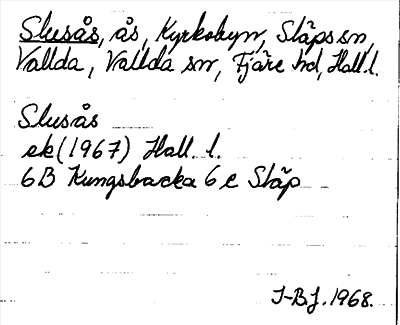 Slusås, ås, Kyrkobyn, Släps sn,
Vallda, Vallda sn, Fjäre hd, Hall. l.
Slusås
ek (1967) Hall. l.
6B Kungsbacka 6 e Släp
I-B.J. 1968.